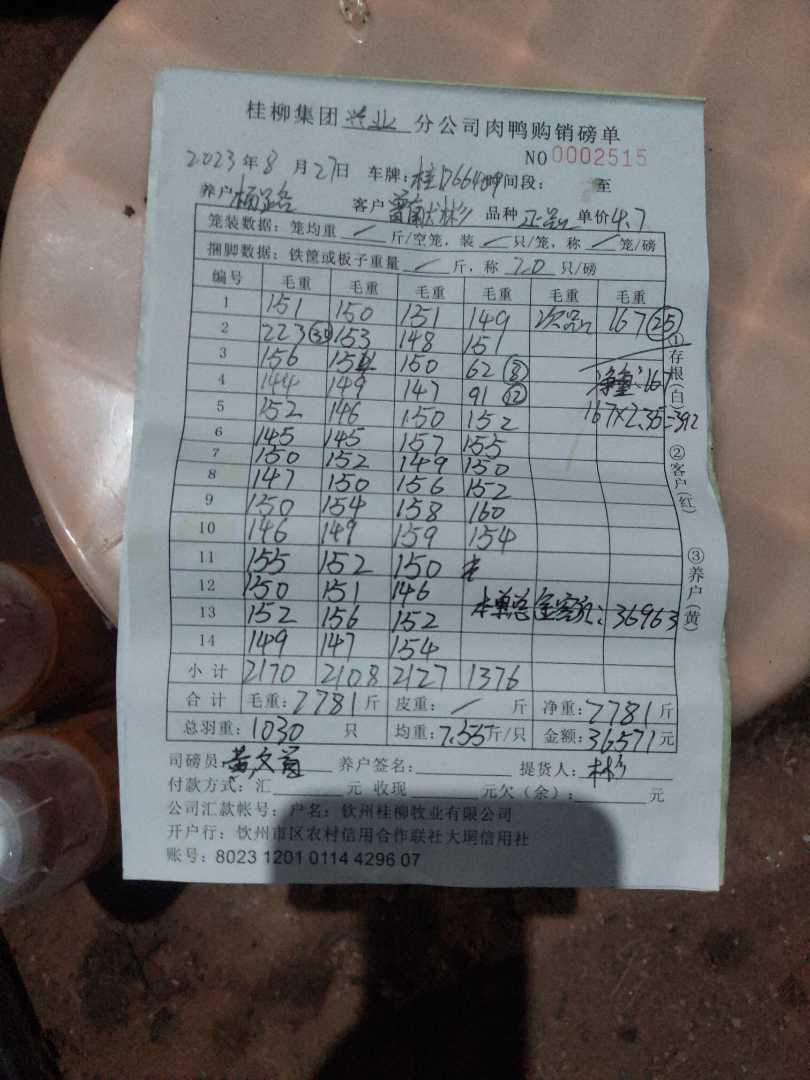 桂柳集团 兴业 分公司肉鸭购销磅单
NO 0002515
2023年8月27日 车牌:桂 时间段: 至
养户 客户 品种 正品 单价4.7
笼装数据:笼均重 / 斤/空笼,装 / 只/笼,称 / 笼/磅
捆脚数据:铁筐或板子重量 / 斤,称 20 只/磅
编号 毛重 毛重 毛重 毛重 毛重 毛重
1 151 150 151 149 次品 167 (25)
2 223 (30) 153 148 151
3 156 154 150 62 (8)
4 144 149 147 91 (12) 净重:167
5 152 146 150 152 167×2.35=392
6 145 145 157 155
7 150 152 149 150
8 147 150 156 152
9 150 154 158 160
10 146 149 159 154
11 155 152 150
12 150 151 146
13 152 156 152 本单总金额: 36963
14 149 147 154
小计 2170 2108 2127 1376
合计 毛重:7781斤 皮重: / 斤 净重:7781斤
总羽重:1030 只 均重:7.55斤/只 金额:36571元
司磅员: 养户签名: 提货人:彬
付款方式:汇 元 收现 元欠(余): 元
公司汇款帐号:户名:钦州桂柳牧业有限公司
开户行:钦州市区农村信用合作联社大垌信用社
账号:8023 1201 0114 4296 07
①存根(白)
②客户(红)
③养户(黄)